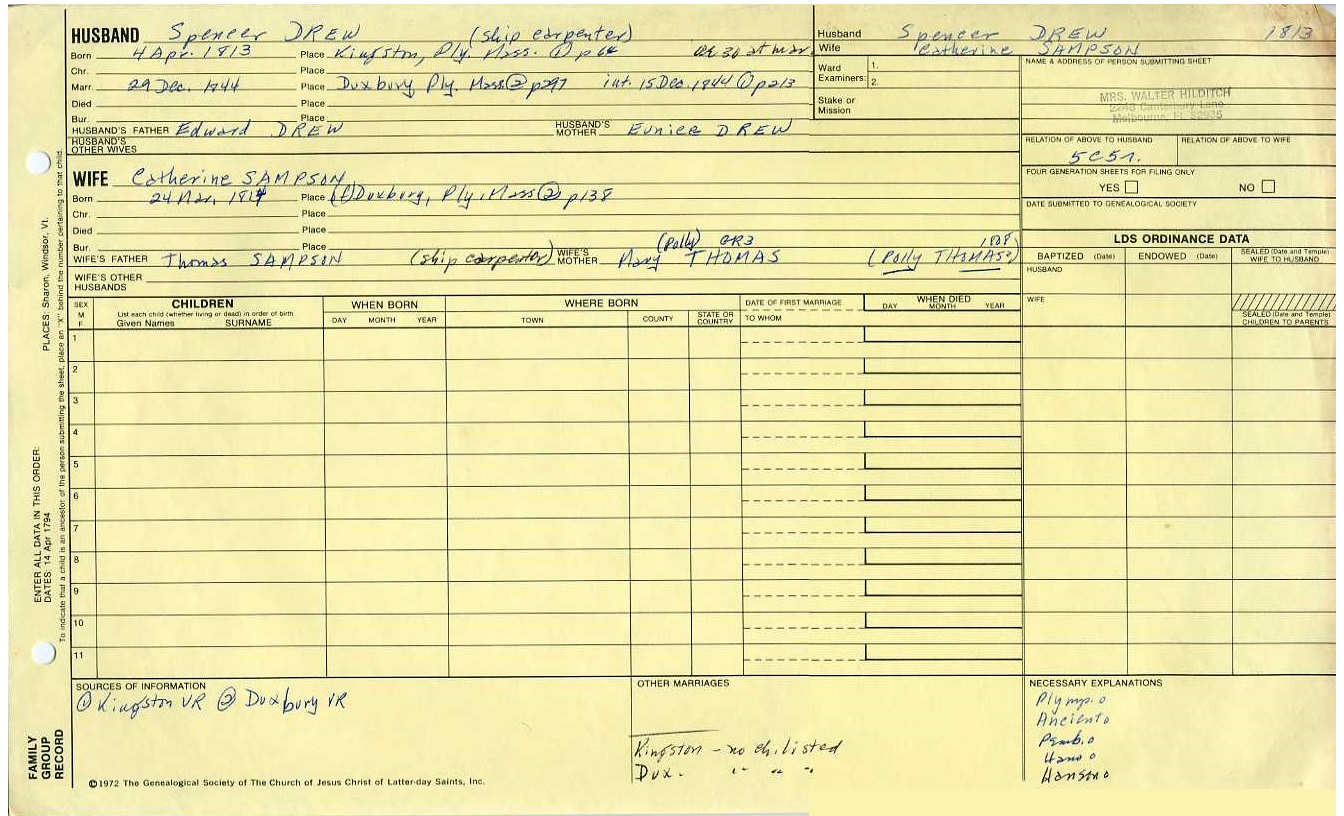 HUSBAND Spencer DREW (ship carpenter)
Born 4 Apr. 1813 Place Kingston, Ply. Mass. ① p 64 ae 30 at mar.
Chr. Place
Marr. 29 Dec. 1844 Place Duxbury Ply. Mass. ② p297 int. 15 Dec. 1844 ① p213
Died Place
Bur. Place
HUSBAND'S FATHER Edward DREW HUSBAND'S MOTHER Eunice DREW
HUSBAND'S OTHER WIVES
WIFE Catherine SAMPSON
Born 24 Mar. 1814 Place (1) Duxbury, Ply. Mass ② p138
Chr. Place
Died Place
Bur. Place (Polly) GR3 1808
WIFE'S FATHER Thomas SAMPSON (ship carpenter) WIFE'S MOTHER Mary THOMAS (Polly THOMAS)
WIFE'S OTHER HUSBANDS
Husband Spencer DREW 1813
Wife Catherine SAMPSON
Ward Examiners: 1. 2.
Stake or Mission
NAME & ADDRESS OF PERSON SUBMITTING SHEET
MRS. WALTER HILDITCH
2245 Canterbury Lane
Melbourne, FL 32935
RELATION OF ABOVE TO HUSBAND RELATION OF ABOVE TO WIFE
5C5r.
FOUR GENERATION SHEETS FOR FILING ONLY
YES NO
DATE SUBMITTED TO GENEALOGICAL SOCIETY
LDS ORDINANCE DATA
BAPTIZED (Date) ENDOWED (Date) SEALED (Date and Temple) WIFE TO HUSBAND
HUSBAND
WIFE
SEALED (Date and Temple) CHILDREN TO PARENTS
SEX M F
CHILDREN
List each child (whether living or dead) in order of birth
Given Names SURNAME
WHEN BORN
DAY MONTH YEAR
WHERE BORN
TOWN COUNTY STATE OR COUNTRY
DATE OF FIRST MARRIAGE
TO WHOM
WHEN DIED
DAY MONTH YEAR
1
2
3
4
5
6
7
8
9
10
11
SOURCES OF INFORMATION
① Kingston VR ② Duxbury VR
OTHER MARRIAGES
Kingston - no ch. listed
Dux. " " "
NECESSARY EXPLANATIONS
Plymp. o
Ancient o
Pemb. o
Han o o
Hanson o
©1972 The Genealogical Society of The Church of Jesus Christ of Latter-day Saints, Inc.
FAMILY GROUP RECORD
ENTER ALL DATA IN THIS ORDER:
DATES: 14 Apr 1794
PLACES: Sharon, Windsor, Vt.
To indicate that a child is an ancestor of the person submitting the sheet, place an "X" behind the number pertaining to that child.